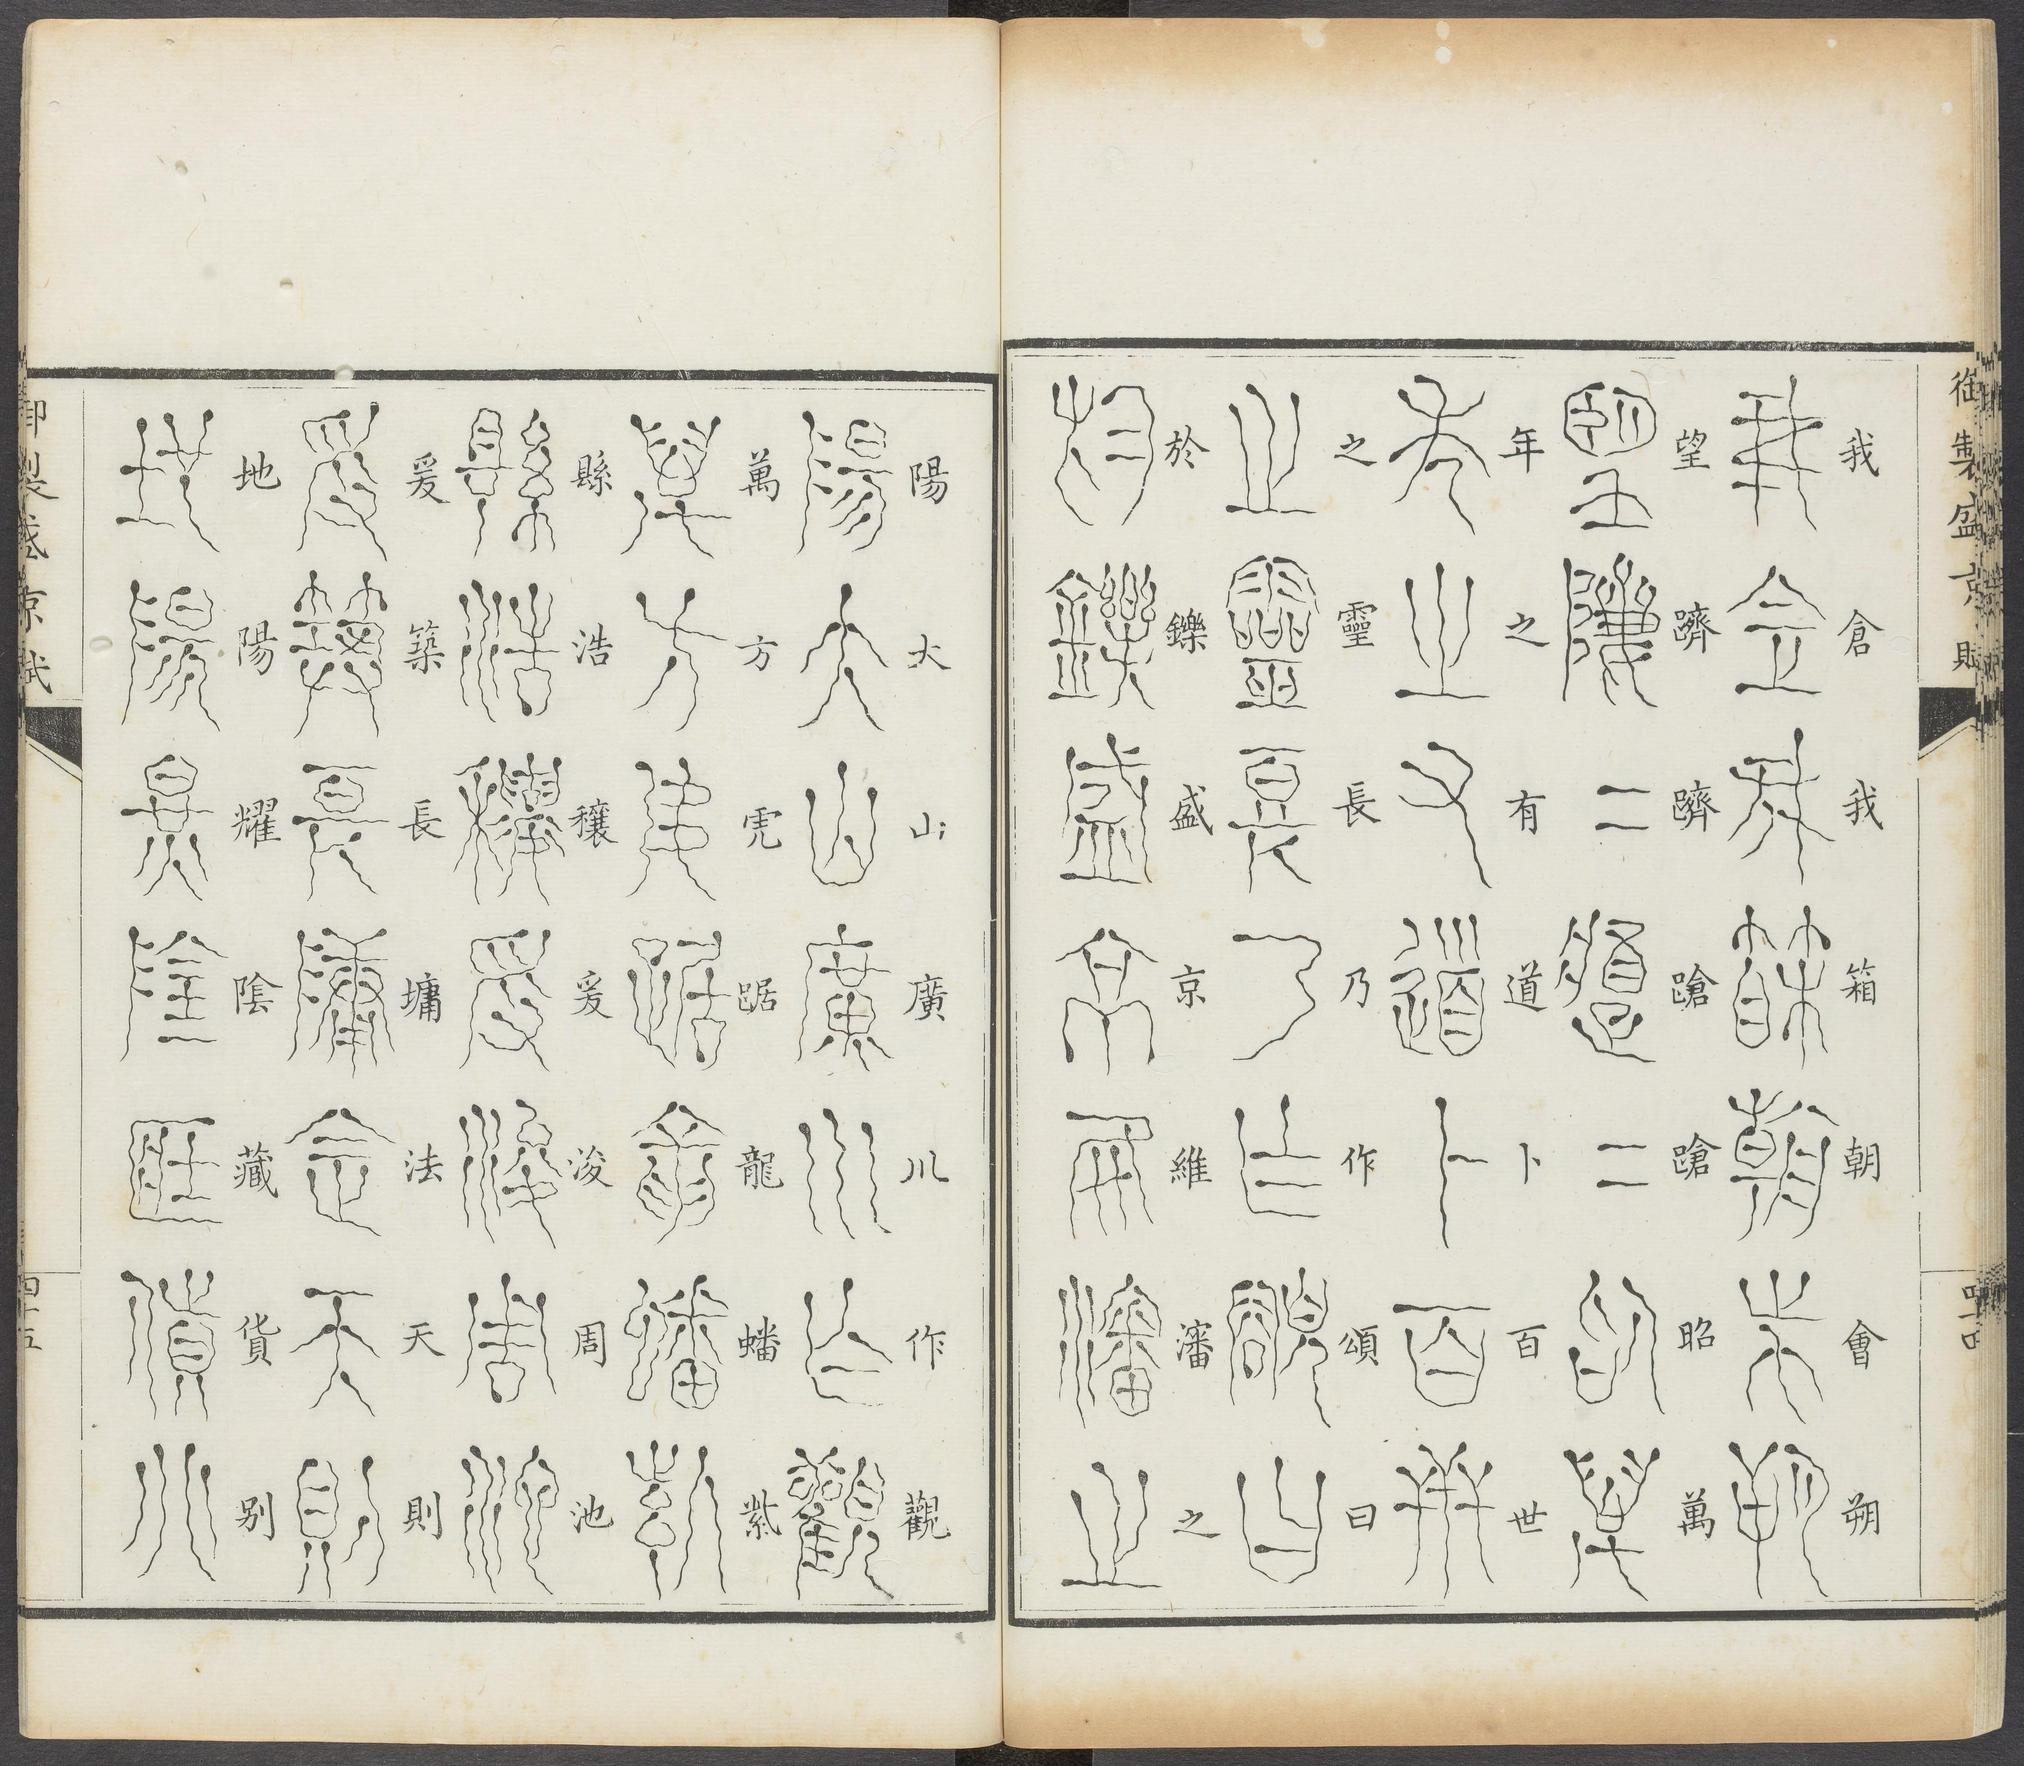 御製盛京賦
我倉我箱朝會朔
望躋躋蹌蹌昭萬
年之有道卜百世
之靈長乃作頌曰
於鑠盛京維瀋之
陽大山廣川作觀
萬方虎踞龍蟠紫
縣浩穰爰浚周池
爰築長墉法天則
地陽耀陰藏貨別
御製盛京賦
四十五